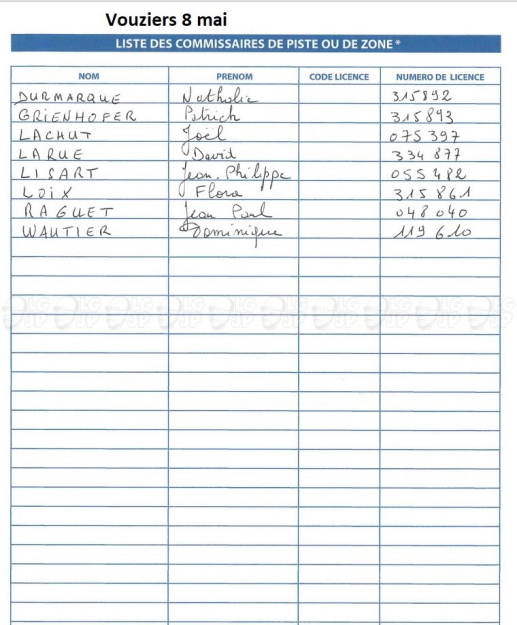 Vouziers 8 mai
LISTE DES COMMISSAIRES DE PISTE OU DE ZONE *
NOM PRENOM CODE LICENCE NUMERO DE LICENCE
DURMARQUE Nathalie 315892
GRIENHOFER Patrick 315893
LACHUT Joël 075 397
LARUE David 334 877
LISART Jean. Philippe 055 482
LOIX Flora 315 861
RAGUET Jean Paul 048 040
WAUTIER Dominique 119 610